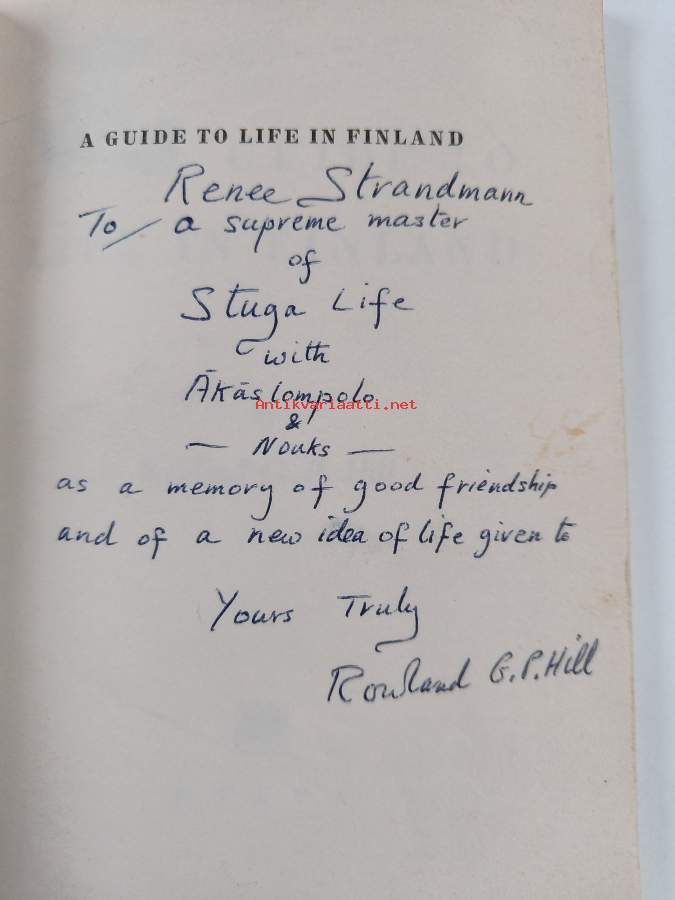 A GUIDE TO LIFE IN FINLAND
Renee Strandmann
To / a supreme master
of
Stuga Life
with
Äkäslompolo
Antikvariaatti.net
&
— Nouks —
as a memory of good friendship
and of a new idea of life given to
Yours Truly
Rowland G.P. Hill